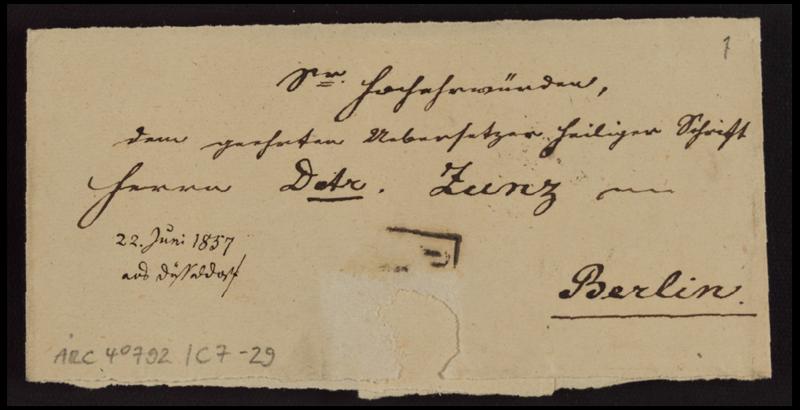 1
Sr. Hochehrwürden,
dem geehrten Uebersetzer heiliger Schrift
Herrn Dctr. Zunz in
22. Juni 1857
aus Düsseldorf
Berlin.
ARC 4° 792 / C7-29